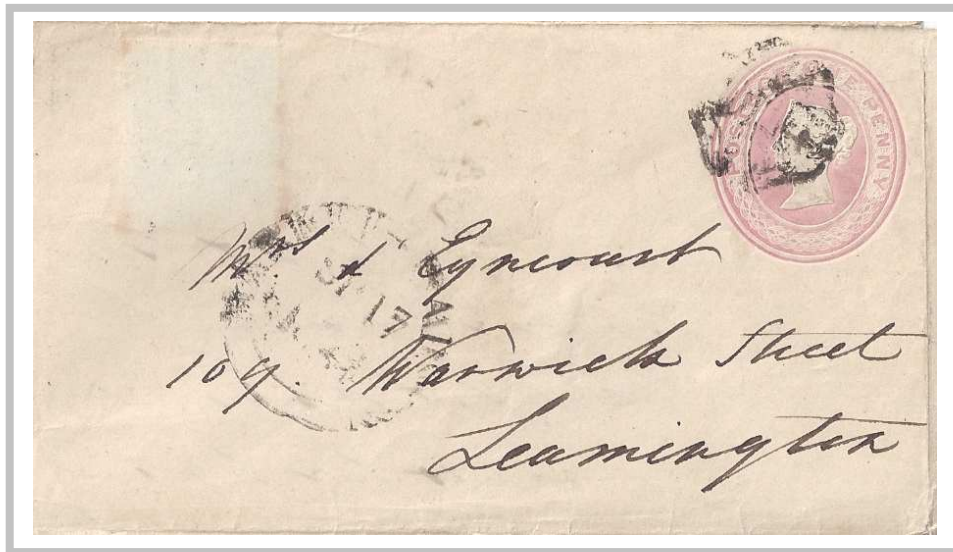 POSTAGE ONE PENNY
Mrs d Eyncourt
17
109. Warwick Street
Leamington